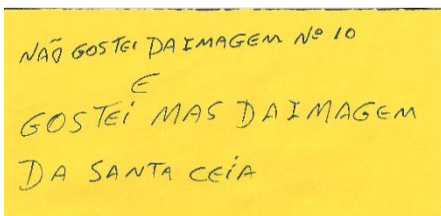 NÃO GOSTEI DA IMAGEM Nº 10
E
GOSTEI MAS DA IMAGEM
DA SANTA CEIA